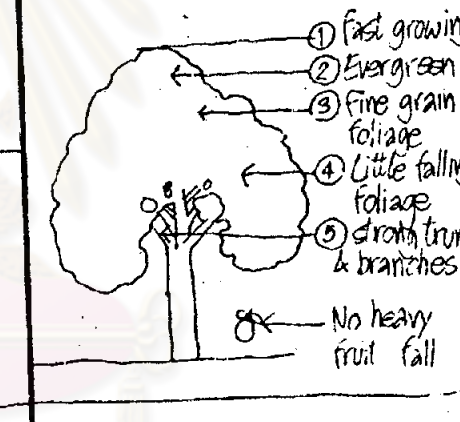 ① Fast growing
② Evergreen
③ Fine grain
foliage
④ Little falling
foliage
⑤ strong trun
& branches
No heavy
fruit fall